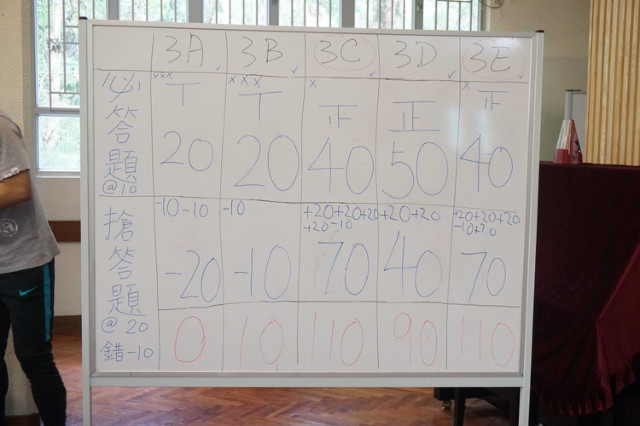 3A 3B 3C 3D 3E
必答題 @10
xxx xxx x x
20 20 40 50 40
搶答題 @20 錯-10
-10-10 -10 +20+20+20+20-10 +20+20 +20+20+20-10+20
-20 -10 70 40 70
0 10 110 90 110